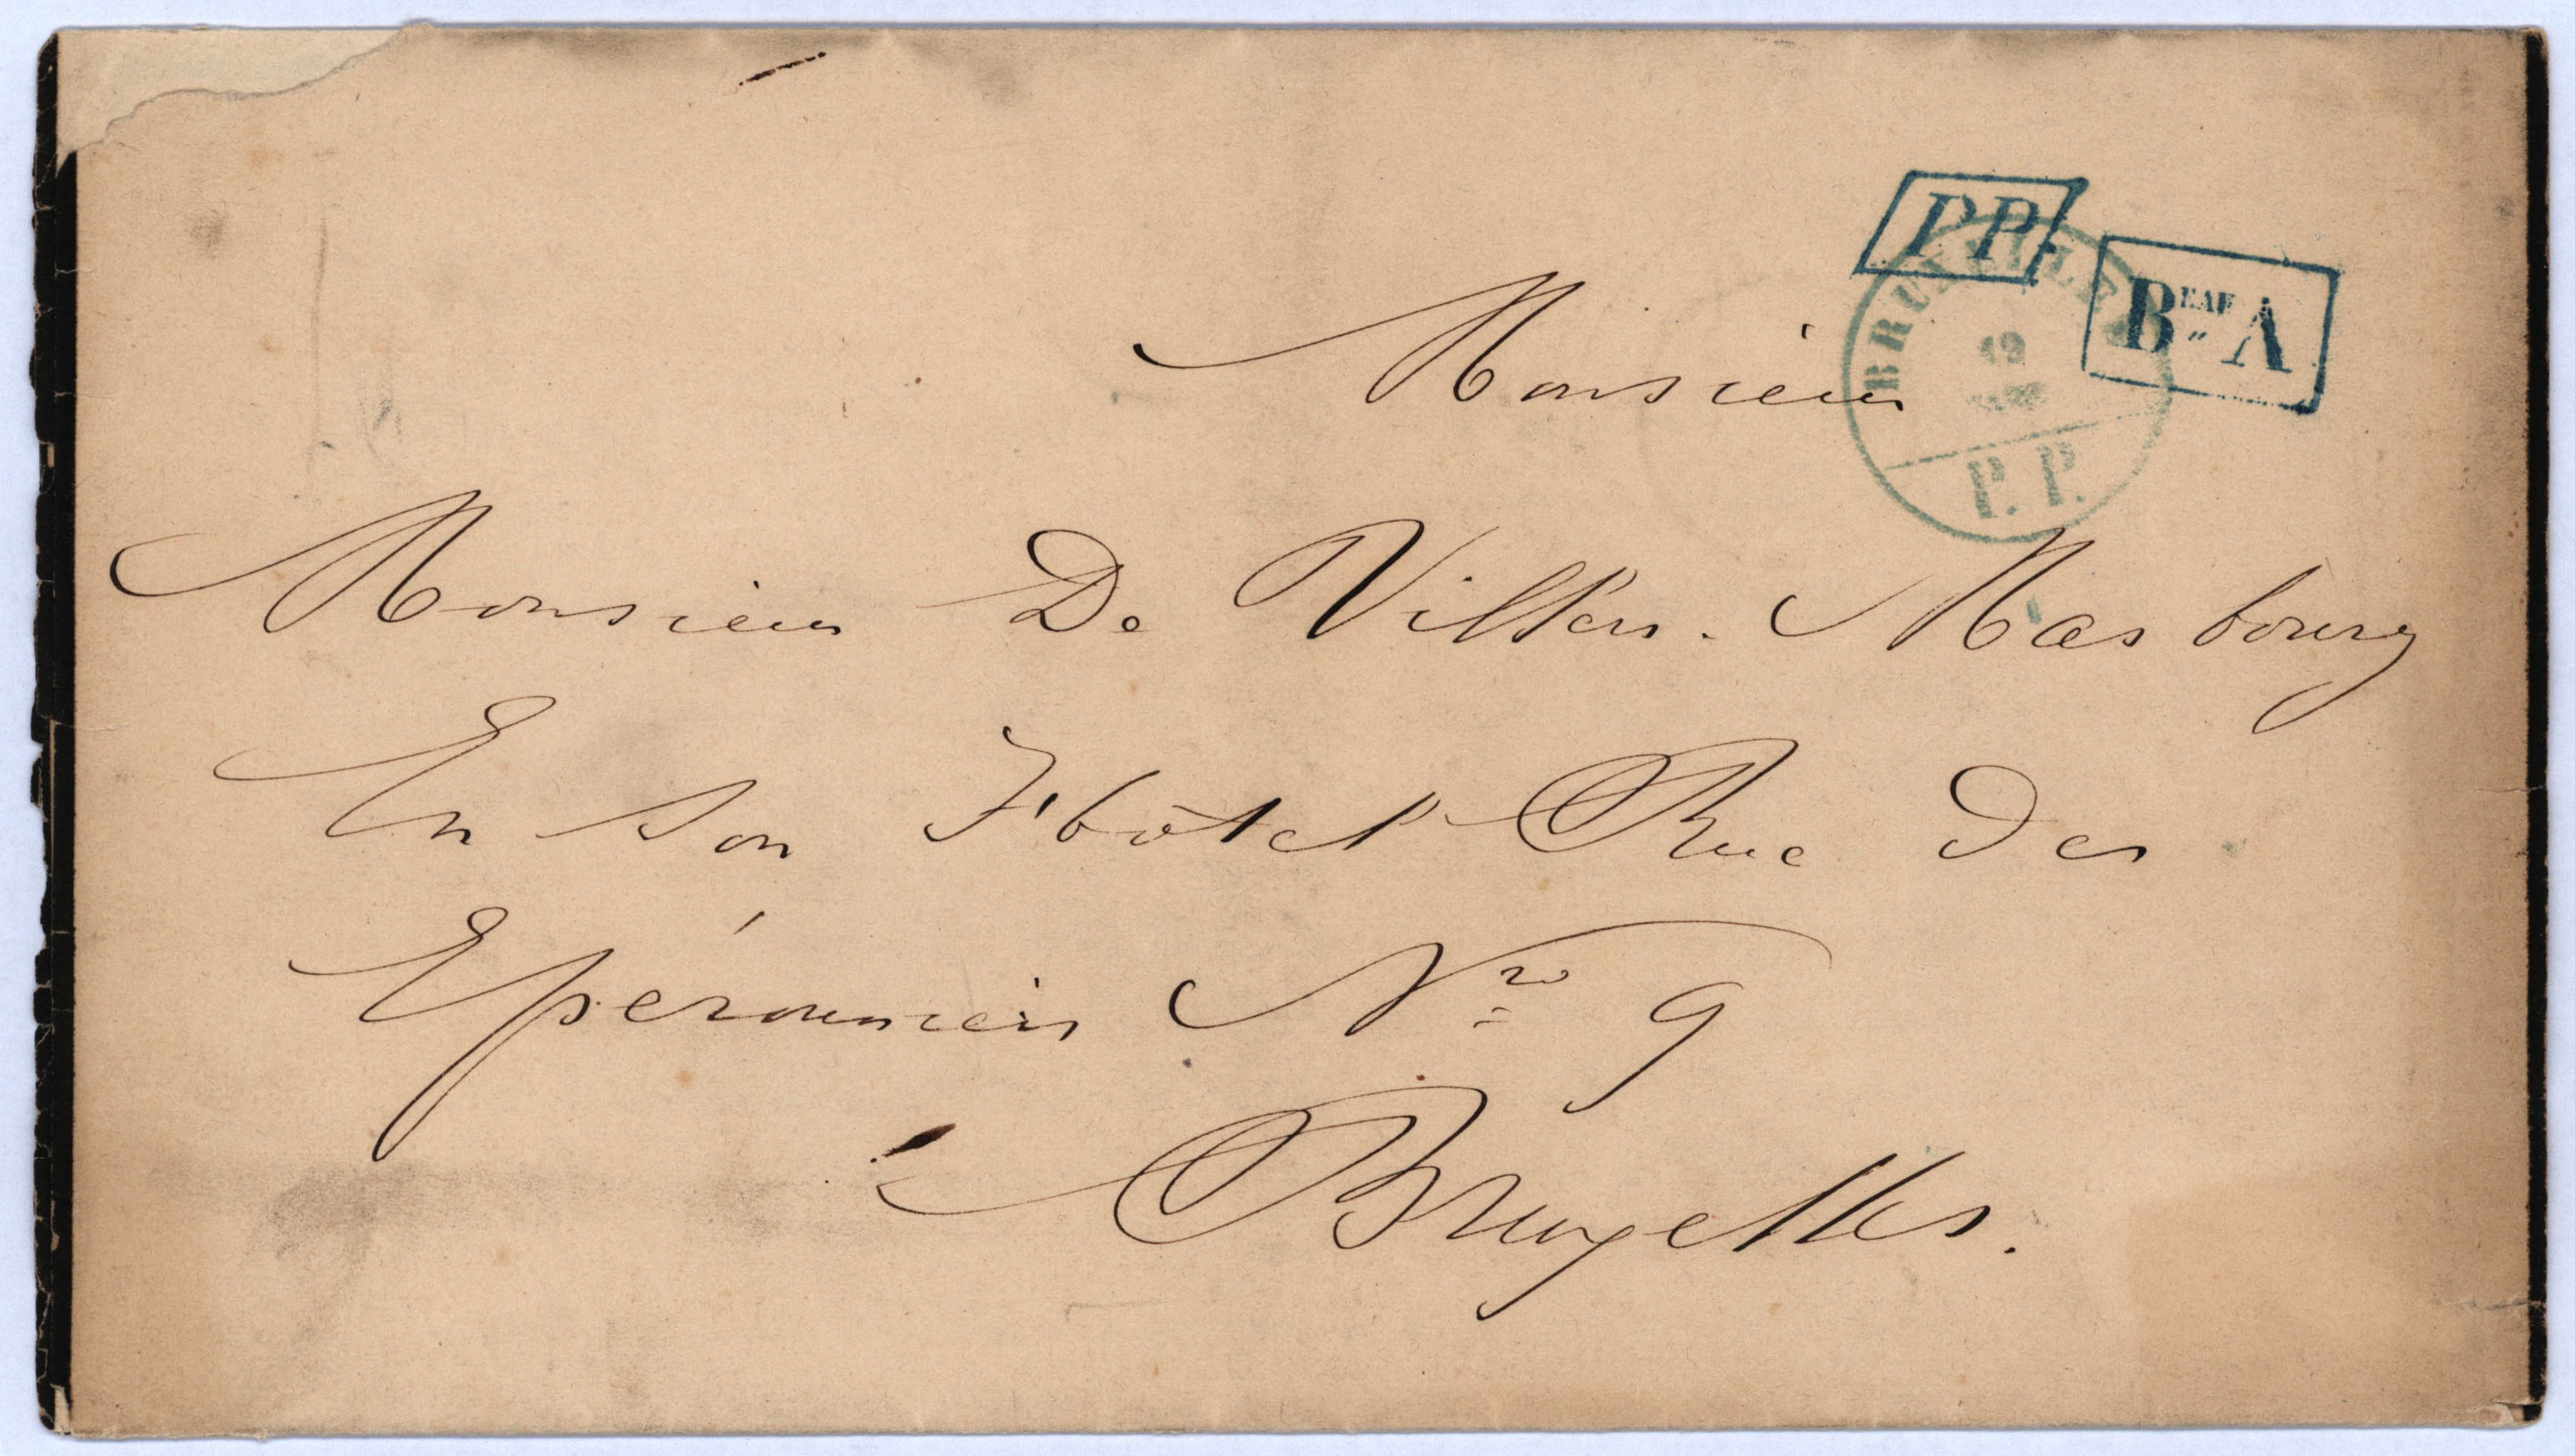 PP
BRUXELLES
12
P.P.
BEAU A
Monsieur
Monsieur De Villers. Masbourg
En son Hôtel Rue des
Epéronniers Nro 9
à Bruxelles.